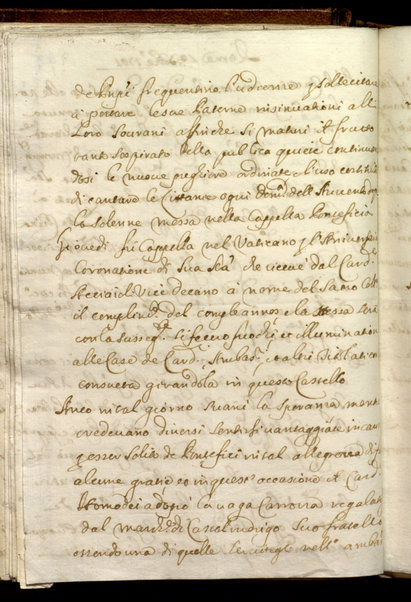 de Prpi frequentino l'udienze p sollecitar
a portare le sue Paterne insinuationi all
Loro Sovrani affinche si maturi il frutto
tanto sospirato della publica quiete continuan
dosi le nuove preghiere ordinate
di cantare le Littanie ogni dom.ca dell'Avvento
la solenne messa nella Cappella Pontificia
Giovedi fu Cappella nel Vaticano p l'Anivers
Coronatione di Sua Stà che riceve dal Card.
Acciaioli Vice Decano à nome del Sacro Coll
il complim.to del congl'annos e la stessa sera
con la susseg.te si fecero fuochi et illuminationi
alle Case de Card.i Ambas.ri et altri
consueta girandola in questo Castello
Anco in tal giorno svanì la speranza mentre
credevano diversi sentirsi vantaggiare in
p esser solito de Pontefici in tal allegrezza di
alcune gratie et in quest'occasione il Card.
Homodei adoprò la vaga Carrozza regalata
dal march.e di Castel Rodrigo suo fratello
essendo una di quelle nell'